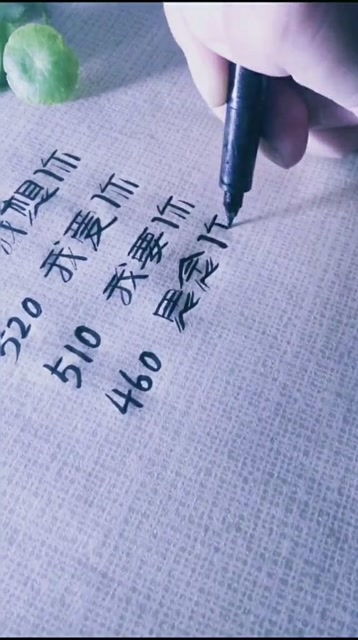 我想你
520 我爱你
510 我要你
460 思念